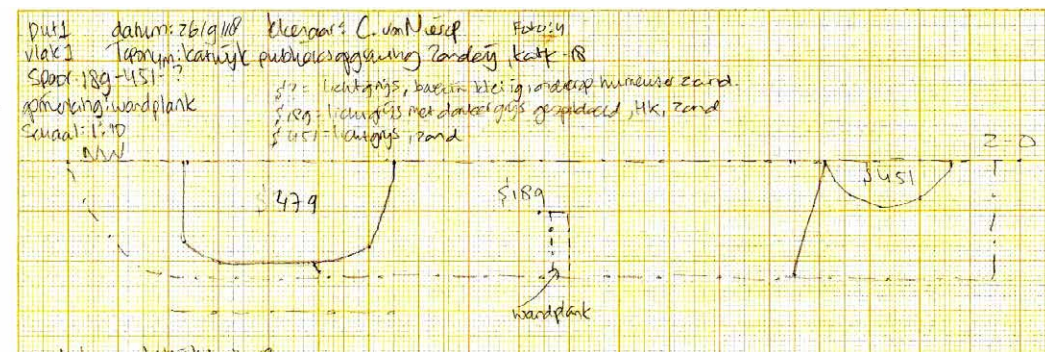 put 1 datum: 26/9/18 tekenaar: C. van Nierop Foto: 4
vlak 1 Toponym: Katwijk publieksopgraving Zanderij, Katk-18
Spoor: 189-451-?
opmerking: wandplank
Schaal: 1:10
S? = lichtgrijs, kleiig, humeuse zand.
S189 = lichtgrijs met donkergrijs gespikkeld, Hk, zand
S451 = lichtgrijs, zand
NW
Z-O
S479
S189
S451
wandplank